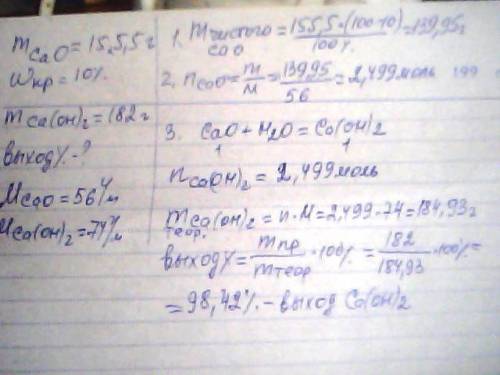 m CaO = 15.5,5 г
ωкр = 10%
m Ca(OH)₂ = 182 г
выход % - ?
M CaO = 56 г/м
M Ca(OH)₂ = 74 г/м
1. m чистого CaO = 155,5·(100-10)/100% = 139,95 г
2. n CaO = m/M = 139,95/56 = 2,499 моль 199
3. CaO + H₂O = Ca(OH)₂
1 1
n Ca(OH)₂ = 2,499 моль
m Ca(OH)₂ теор. = n·M = 2,499·74 = 184,93 г
выход % = m пр/m теор ·100% = 182/184,93 ·100% =
= 98,42% - выход Ca(OH)₂